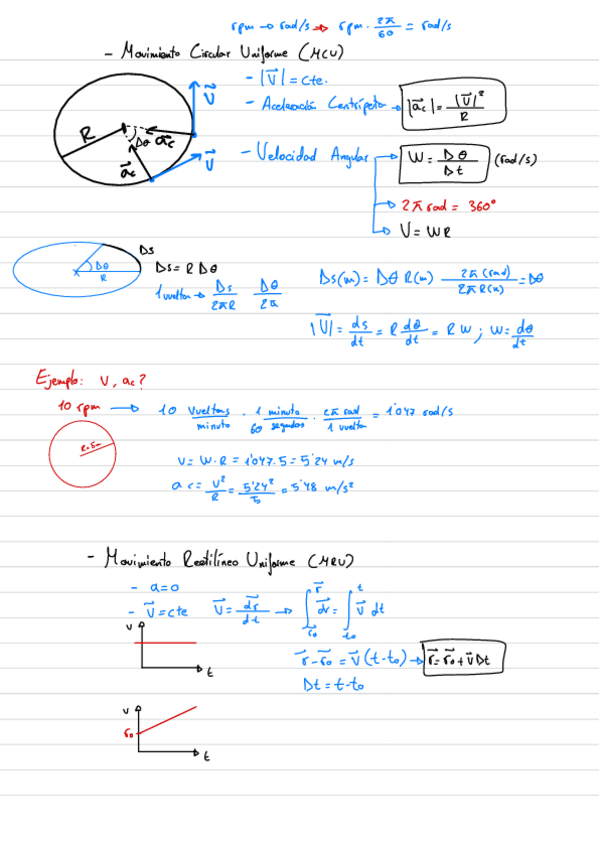 rpm → rad/s ⇒ rpm · 2π/60 = rad/s
- Movimiento Circular Uniforme (MCU)
- |V⃗| = cte.
- Aceleración Centrípeta → |a⃗c| = |V⃗|²/R
R Δθ a⃗c a⃗c V⃗ V⃗
- Velocidad Angular → W = Δθ/Δt (rad/s)
2π rad = 360°
V = WR
Δs Δθ R
Δs = R Δθ
1 vuelta → Δs/2πR Δθ/2π
Δs(m) = Δθ R(m) 2π(rad)/2πR(m) = Δθ
|V⃗| = ds/dt = R dθ/dt = R W ; W = dθ/dt
Ejemplo: V, ac?
10 rpm → 10 vueltas/minuto · 1 minuto/60 segundos · 2π rad/1 vuelta = 1'047 rad/s
R=5m
V = W·R = 1'047·5 = 5'24 m/s
ac = V²/R = 5'24²/5 = 5'48 m/s²
- Movimiento Rectilíneo Uniforme (MRU)
- a=0
- V⃗ = cte V⃗ = dr⃗/dt → ∫r⃗₀^r⃗ dr⃗ = ∫t₀^t V⃗ dt
V t
r⃗ - r⃗₀ = V⃗(t-t₀) → r⃗ = r⃗₀ + V⃗Δt
Δt = t-t₀
V r₀ t